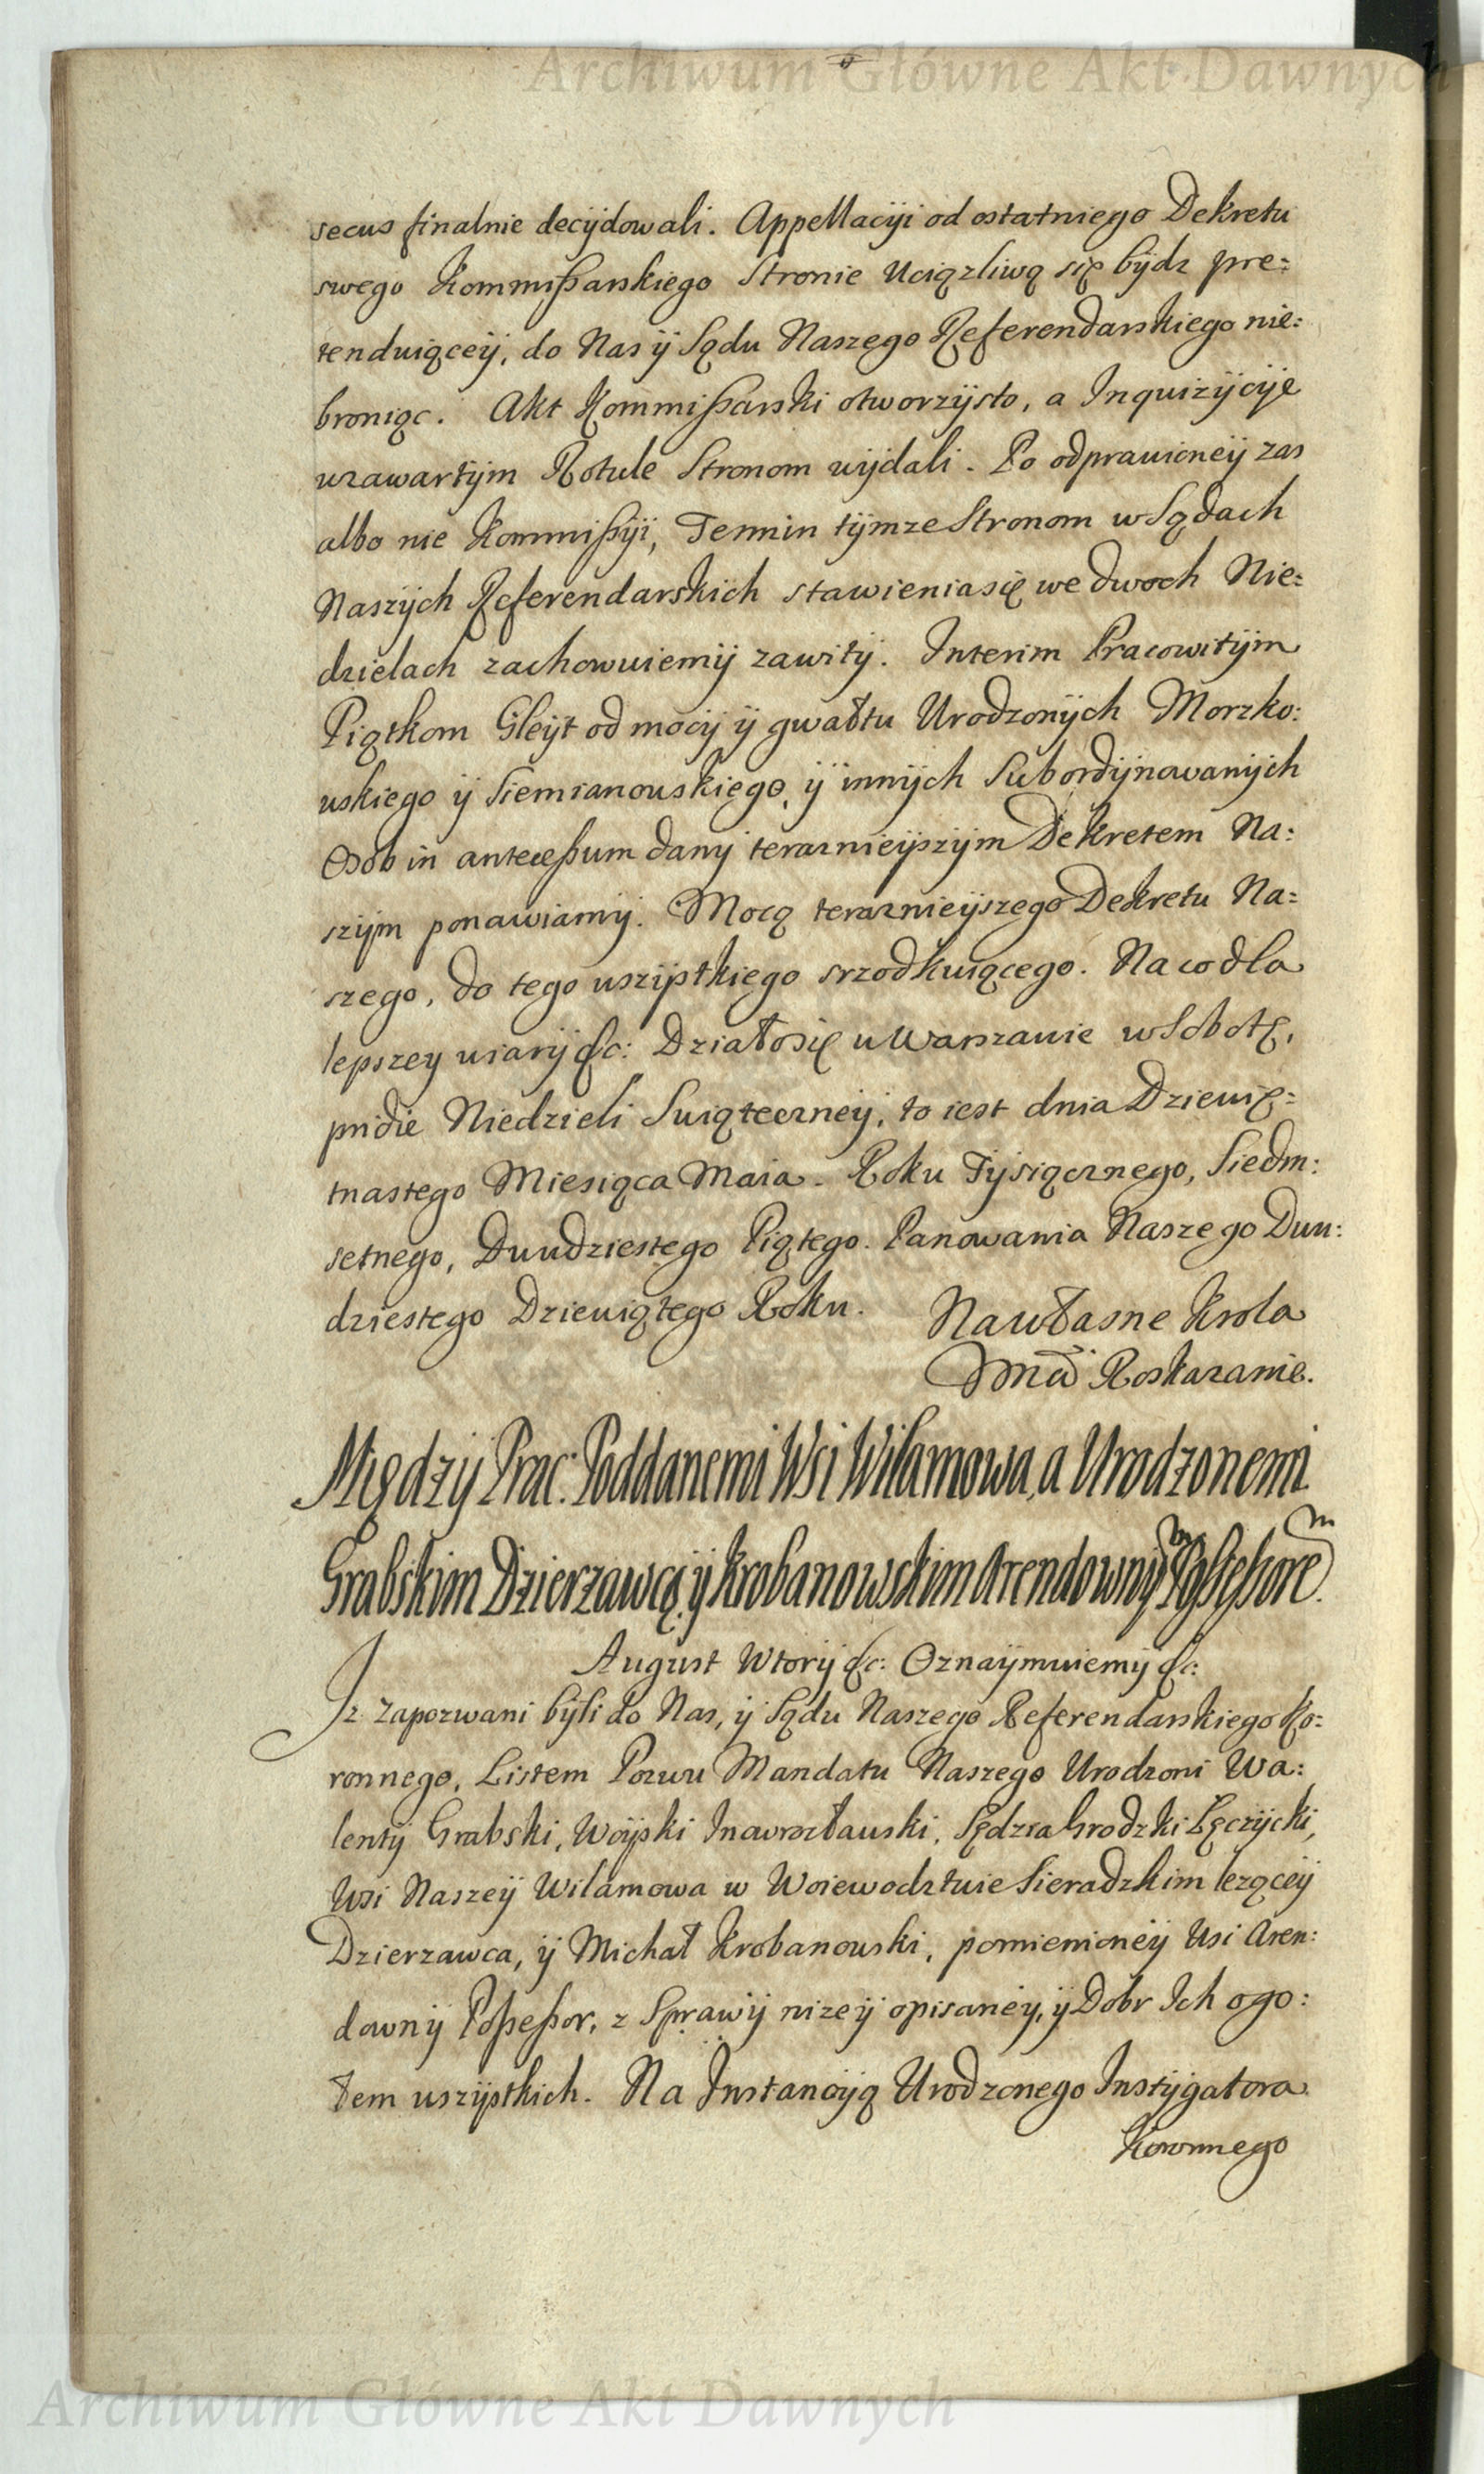 Archiwum Główne Akt Dawnych
secus finalnie decÿdowali. Appellacÿi od ostatniego Dekretu
swego Kommißarskiego Stronie Uciązliwą się bÿdz pre=
tenduiąceÿ, do Nas ÿ Sądu Naszego Referendarskiego nie=
broniąc. Akt Kommißarski otworzÿsto, a Inquizÿcÿe
wzawartÿm Rotule Stronom wÿdali. Po odprawioneÿ zas
albo nie Kommißÿi, Termin tÿmze Stronom w Sądach
Naszÿch Referendarskich stawienia się we dwoch Nie=
dzielach zachowuiemÿ zawitÿ. Interim Pracowitÿm
Piątkom Gleÿt od mocÿ ÿ gwałtu Urodzonÿch Morzko=
wskiego ÿ Siemianowskiego, ÿ innÿch Subordÿnowanÿch
Osob in anteceßum danÿ teraznieÿszÿm Dekretem Na=
szÿm ponawiamÿ. Mocą teraznieÿszego Dekretu Na=
szego, do tego wszÿstkiego srzodkuiącego. Na co dla
lepszey wiarÿ &c: Działo się w Warszawie w Sobotę,
pridie Niedzieli Swiąteczneÿ, to iest dnia Dziewię=
tnastego Miesiąca Maia. Roku Tÿsiącznego, Siedm=
setnego, Dwudziestego Piątego. Panowania Naszego Dwu=
dziestego Dziewiątego Roku. Na własne Krola
Jmci Roskazanie.
Międzÿ Prac: Poddanemi Wsi Wilamowa, a Urodzonemi
Grabskim Dzierzawcą, ÿ Krobanowskim Arendownÿm Poßeßorem.
August Wtorÿ &c: Oznaÿmuiemÿ &c:
Iz Zapozwani bÿli do Nas, ÿ Sądu Naszego Referendarskiego Ko=
ronnego, Listem Pozwu Mandatu Naszego Urodzoni Wa=
lentÿ Grabski, Woÿski Inowrocławski, Sędzia Grodzki Łęczÿcki,
Wsi Naszeÿ Wilamowa w Woiewodztwie Sieradzkim leząceÿ
Dzierzawca, ÿ Michał Krobanowski, pomienioneÿ Wsi Aren=
downÿ Poßeßor, z Sprawÿ nizeÿ opisaneÿ, ÿ Dobr Ich ogo=
łem wszÿstkich. Na Instancÿą Urodzonego Instÿgatora
Koronnego
Archiwum Główne Akt Dawnych